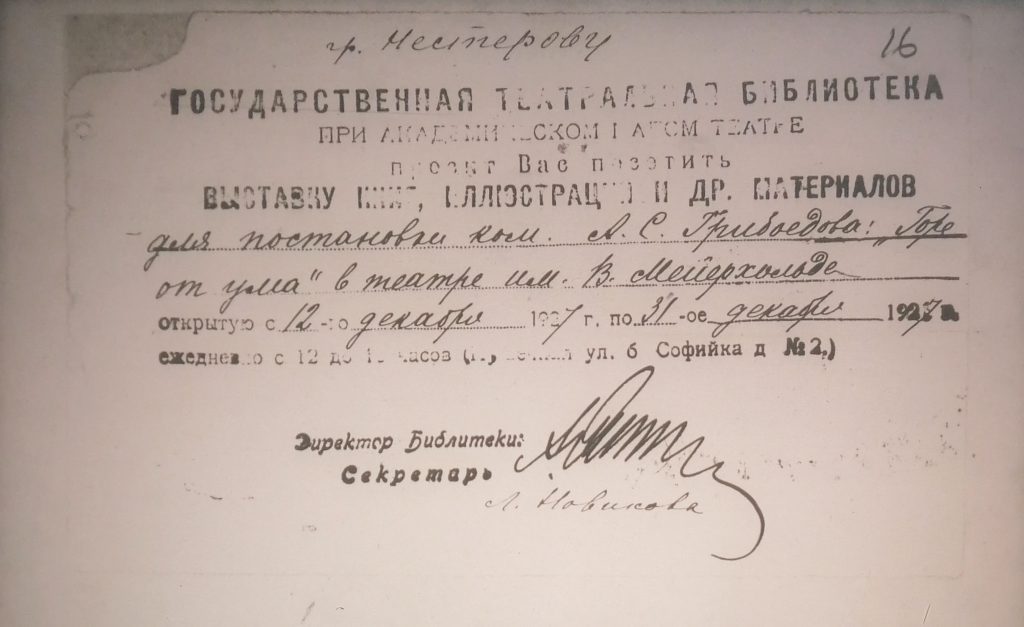 гр. Нестерову
16
ГОСУДАРСТВЕННАЯ ТЕАТРАЛЬНАЯ БИБЛИОТЕКА
ПРИ АКАДЕМИЧЕСКОМ МАЛОМ ТЕАТРЕ
просит Вас посетить
ВЫСТАВКУ КНИГ, ИЛЛЮСТРАЦИЙ И ДР. МАТЕРИАЛОВ
для постановки ком. А. С. Грибоедова: „Горе
от ума" в театре им. В. Мейерхольда
открытую с 12-го декабря 1927 г. по 31-ое декабря 1927 г.
ежедневно с 12 до часов ( ул. б Софийка д №2.)
Директор Библитеки:
Секретарь
Л. Новикова